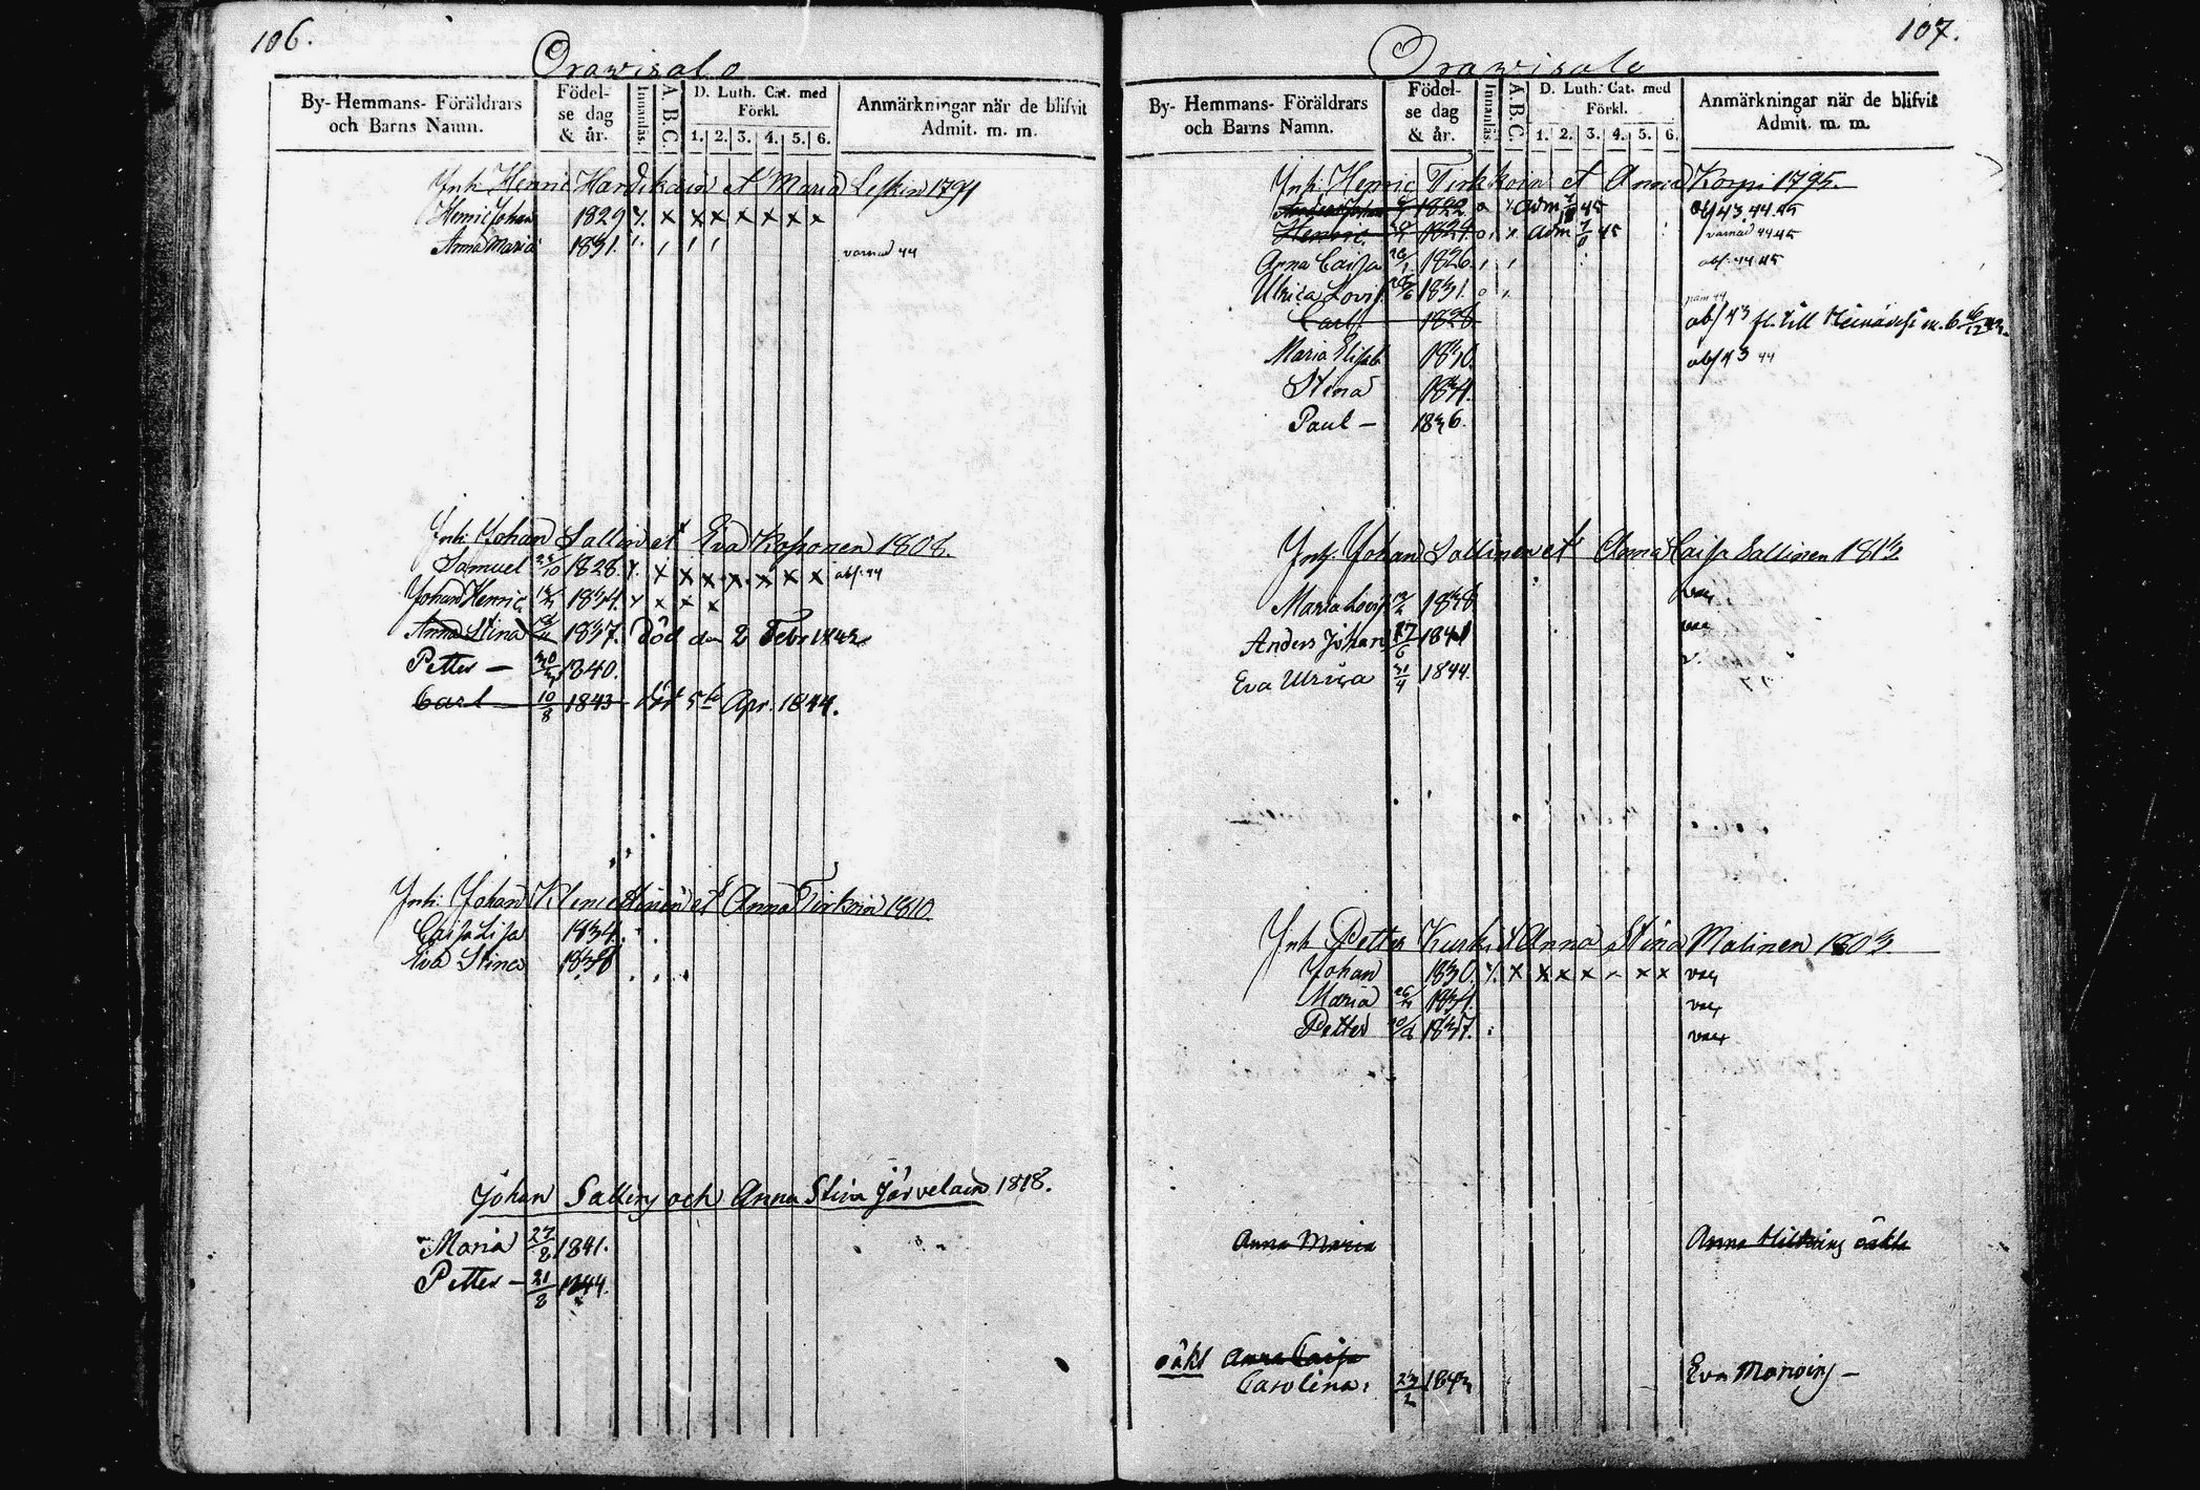 106.
Orawisalo
By- Hemmans- Föräldrars och Barns Namn.
Födelse dag & år.
Innanläs.
A. B. C.
D. Luth. Cat. med Förkl.
1. 2. 3. 4. 5. 6.
Anmärkningar när de blifvit Admit. m. m.
Inh. Henric Hardikain et Maria Leskin 1791
Henric Johan 1829 x x x x x x x
Anna Maria 1831. varnad 44
Inh. Johan Sallin et Eva Kosonen 1808.
Samuel 1828. x x x x x x x abs. 44
Johan Henric 1834. x x x
Anna Stina 1837. död den 2 Febr 1843
Petter — 1840.
Carl 10/8 1843 död 5te Apr. 1844.
Inh. Johan Klemettinen et Anna Tirkoin 1810
Caisa Lisa 1834.
Eva Stina 1838
Johan Salling och Anna Stina Järvelain 1818.
Maria 27/8 1841.
Petter — 21/8 1844.
107.
Orawisalo
By- Hemmans- Föräldrars och Barns Namn.
Födelse dag & år.
Innanläs.
A. B. C.
D. Luth. Cat. med Förkl.
1. 2. 3. 4. 5. 6.
Anmärkningar när de blifvit Admit. m. m.
Inh. Henric Tirkkoin et Anna Korpi 1795.
1822 adm 45 abs 43. 44. 45
Henric 1824. adm 45 varnad 44 45
Anna Caisa 1826. abs. 44 45
Ulrica Lovis. 1831.
Carl 1828 abs 43 fl. till
Maria Elisab 1830. abs 43 44
Stina 1834.
Paul — 1836.
Inh. Johan Sallinen et Anna Caisa Sallinen 1813
Maria Lovis 1838
Anders Johan 17/6 1841
Eva Ulrica 1844.
Inh. Petter Kurki et Anna Stina Malinen 1803.
Johan 1830. x x x x x x x
Maria 1834.
Petter 1837.
Anna Maria
oäkta
oäkt Anna Caisa
Carolina 23/2 1843 Eva —